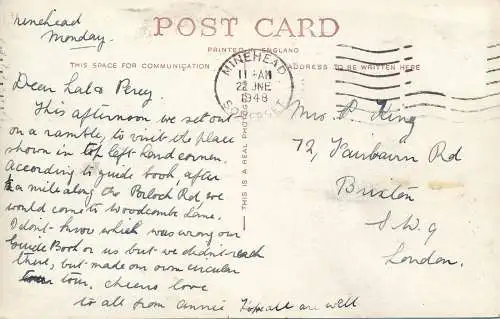 Minehead
Monday.
POST CARD
PRINTED IN ENGLAND
THIS SPACE FOR COMMUNICATION
ADDRESS TO BE WRITTEN HERE
MINEHEAD
11 AM
22 JNE
1948
SOMERSET
THIS IS A REAL PHOTOGRAPH
Dear Lal & Percy.
This afternoon we set out
on a ramble, to visit the place
shown in top left hand corner.
According to guide book, after
a mile along the Porlock Rd, we
would come to Woodcombe Lane.
I don't know which was wrong our
Guide Book or us but we didn't reach
there, but made our own circular
tour. Cheerio love
to all from Annie Hope all are well
Mrs P. King
72, Fairbairn Rd
Brixton
S.W.9
London.